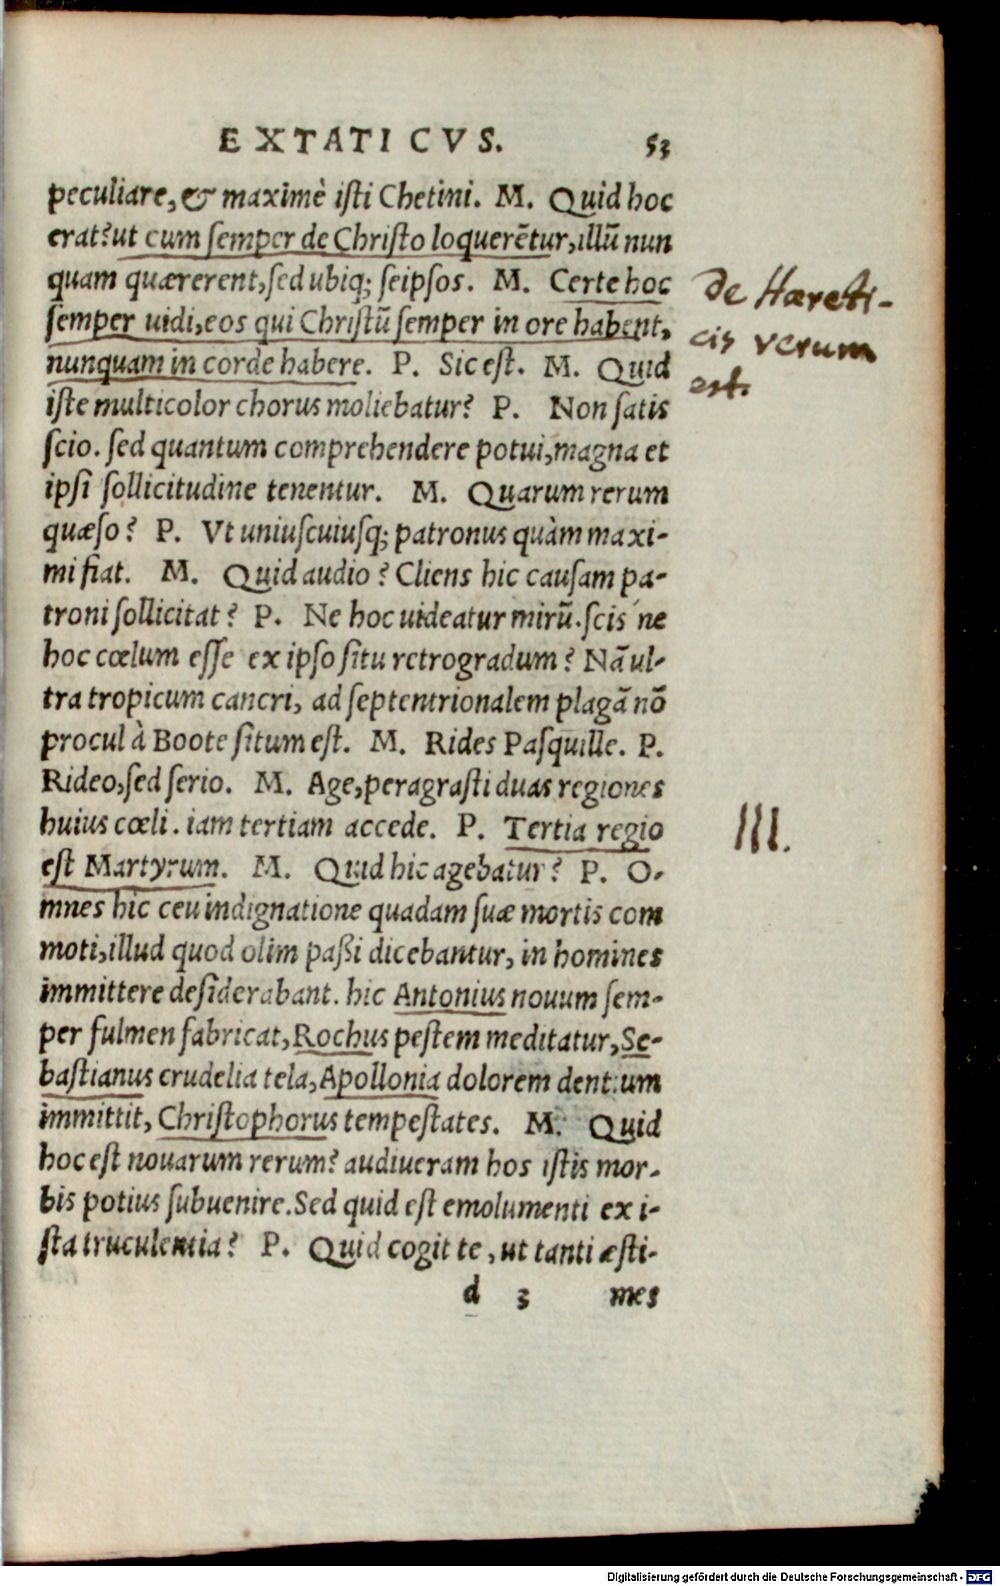 EXTATICVS. 53
peculiare, & maximè isti Chetini. M. Quid hoc
erat? ut cum semper de Christo loquerẽtur, illũ nun
quam quærerent, sed ubiq; seipsos. M. Certe hoc
semper uidi, eos qui Christũ semper in ore habent,
nunquam in corde habere. P. Sic est. M. Quid
iste multicolor chorus moliebatur? P. Non satis
scio. sed quantum comprehendere potui, magna et
ipsi sollicitudine tenentur. M. Quarum rerum
quæso? P. Vt uniuscuiusq; patronus quàm maxi-
mi fiat. M. Quid audio? Cliens hic causam pa-
troni sollicitat? P. Ne hoc uideatur mirũ. scis ne
hoc cœlum esse ex ipso situ retrogradum? Nã ul-
tra tropicum cancri, ad septentrionalem plagã nõ
procul à Boote situm est. M. Rides Pasquille. P.
Rideo, sed serio. M. Age, peragrasti duas regiones
huius cœli. iam tertiam accede. P. Tertia regio
est Martyrum. M. Quid hic agebatur? P. O-
mnes hic ceu indignatione quadam suæ mortis com
moti, illud quod olim paßi dicebantur, in homines
immittere desiderabant. hic Antonius nouum sem-
per fulmen fabricat, Rochus pestem meditatur, Se-
bastianus crudelia tela, Apollonia dolorem dentium
immittit, Christophorus tempestates. M. Quid
hoc est nouarum rerum? audiueram hos istis mor-
bis potius subuenire. Sed quid est emolumenti ex i-
sta truculentia? P. Quid cogit te, ut tanti æsti-
d 3 mes
de Hæreti-
cis verum
est.
III.
Digitalisierung gefördert durch die Deutsche Forschungsgemeinschaft - DFG